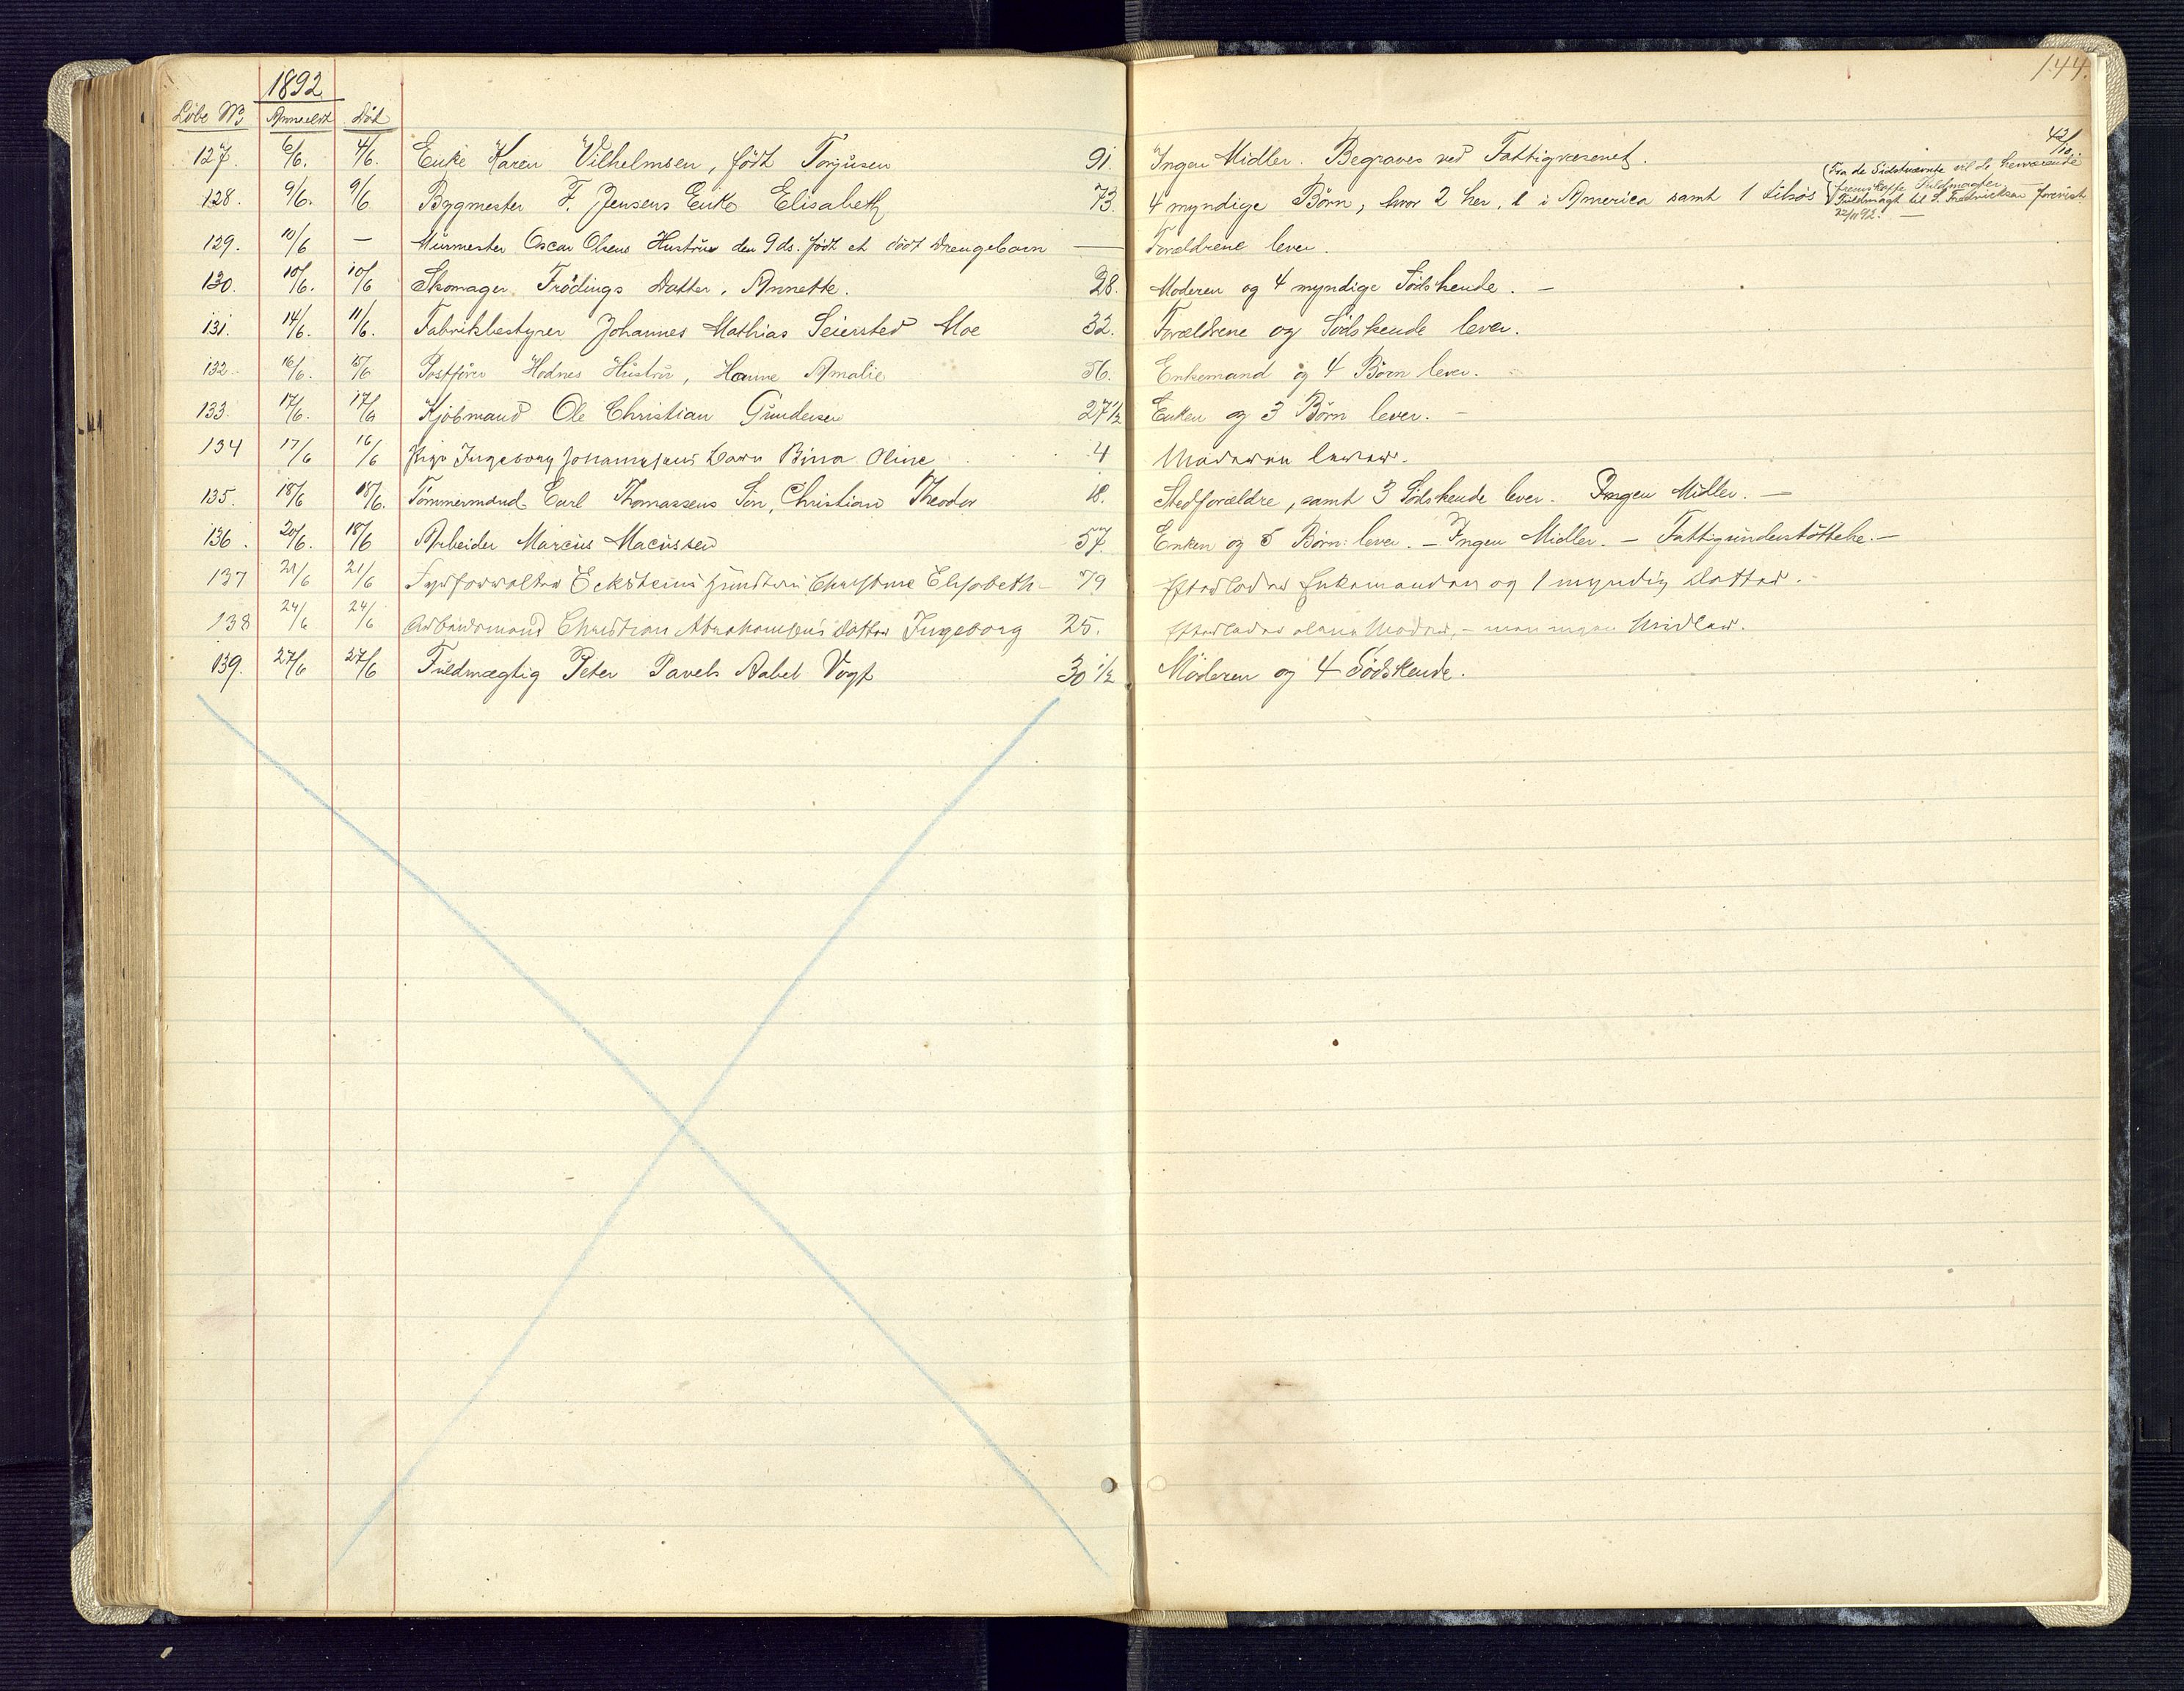 1892
144.
Löbe No Anmeldt Död
42/10
127. 6/6. 4/6. Enke Karen Vilhelmsen, födt Torjusen 91. Ingen Midler. Begraves ved Fattigvæsenet.
128. 9/6. 9/6 Bygmester F. Jensens Enke Elisabeth 73. 4 myndige Börn, hvor 2 her, 1 i America samt 1 tilsös
(Fra de Sidstnævnte vil de herværende
fremskaffe Fuldmagter.
Fuldmagt til S. Fredriksen forevist
22/11 92. —
129. 10/6 — Murmester Oscar Olsens Hustru den 9 ds. födt et dödt Drengebarn — Forældrene lever.
130. 10/6. 10/6 Skomager Trödings Datter, Annette. 28. Moderen og 4 myndige Södskende. —
131. 14/6. 11/6. Fabrikbestyrer Johannes Mathias Seiersted Moe 32. Forældrene og Södskende lever.
132. 16/6. 15/6 Postförer Hodnes Hustru, Hanne Amalie 56. Enkemand og 4 Börn lever.
133. 17/6. 17/6 Kjöbmand Ole Christian Gundersen 27 1/2 Enken og 3 Börn lever. —
134 17/6 16/6 Pige Ingeborg Johannesens Barn Bina Oline 4 Moderen lever.
135. 18/6 18/6. Tömmermand Carl Thomassens Sön, Christian Theodor 18. Stedforældre, samt 3 Södskende lever. Ingen Midler. —
136. 20/6. 18/6 Arbeider Marcus Macussen 57 Enken og 5 Börn lever. — Ingen Midler. — Fattigunderstöttelse. —
137 21/6 21/6 Ecksteins Hustru Christine Elisabeth — 79 Efterlader Enkemanden og 1 myndig Datter. —
138 24/6 24/6 Arbeidsmand Christian Abrahamsens Datter Ingeborg 25. Efterlader alene Moder, — men ingen Midler.
139. 27/6 27/6 Fuldmægtig Peter Pavels Aabel Vogt 30 1/2 Moderen og 4 Södskende.